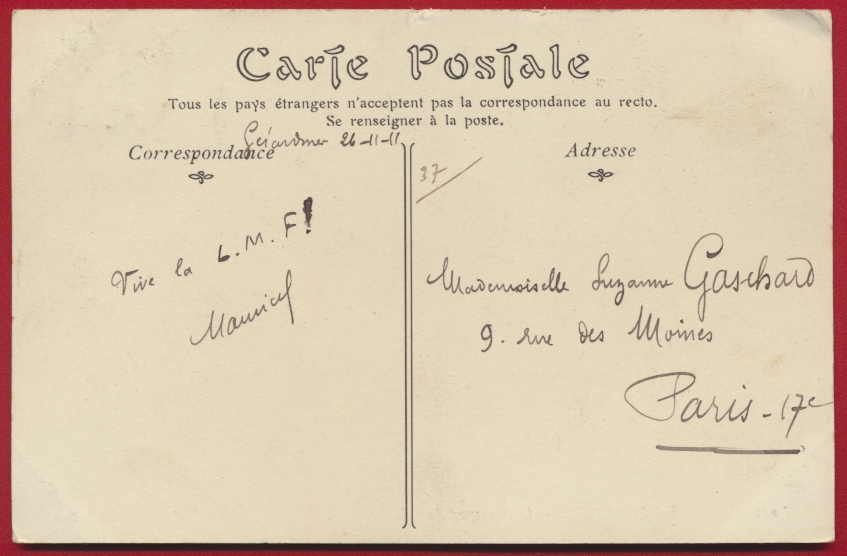 Carte Postale
Tous les pays étrangers n'acceptent pas la correspondance au recto.
Se renseigner à la poste.
Gérardmer 26-11-11
Correspondance
Vive la L.M.F!
Maurice
37
Adresse
Mademoiselle Suzanne Gaschard
9. rue des Moines
Paris - 17e